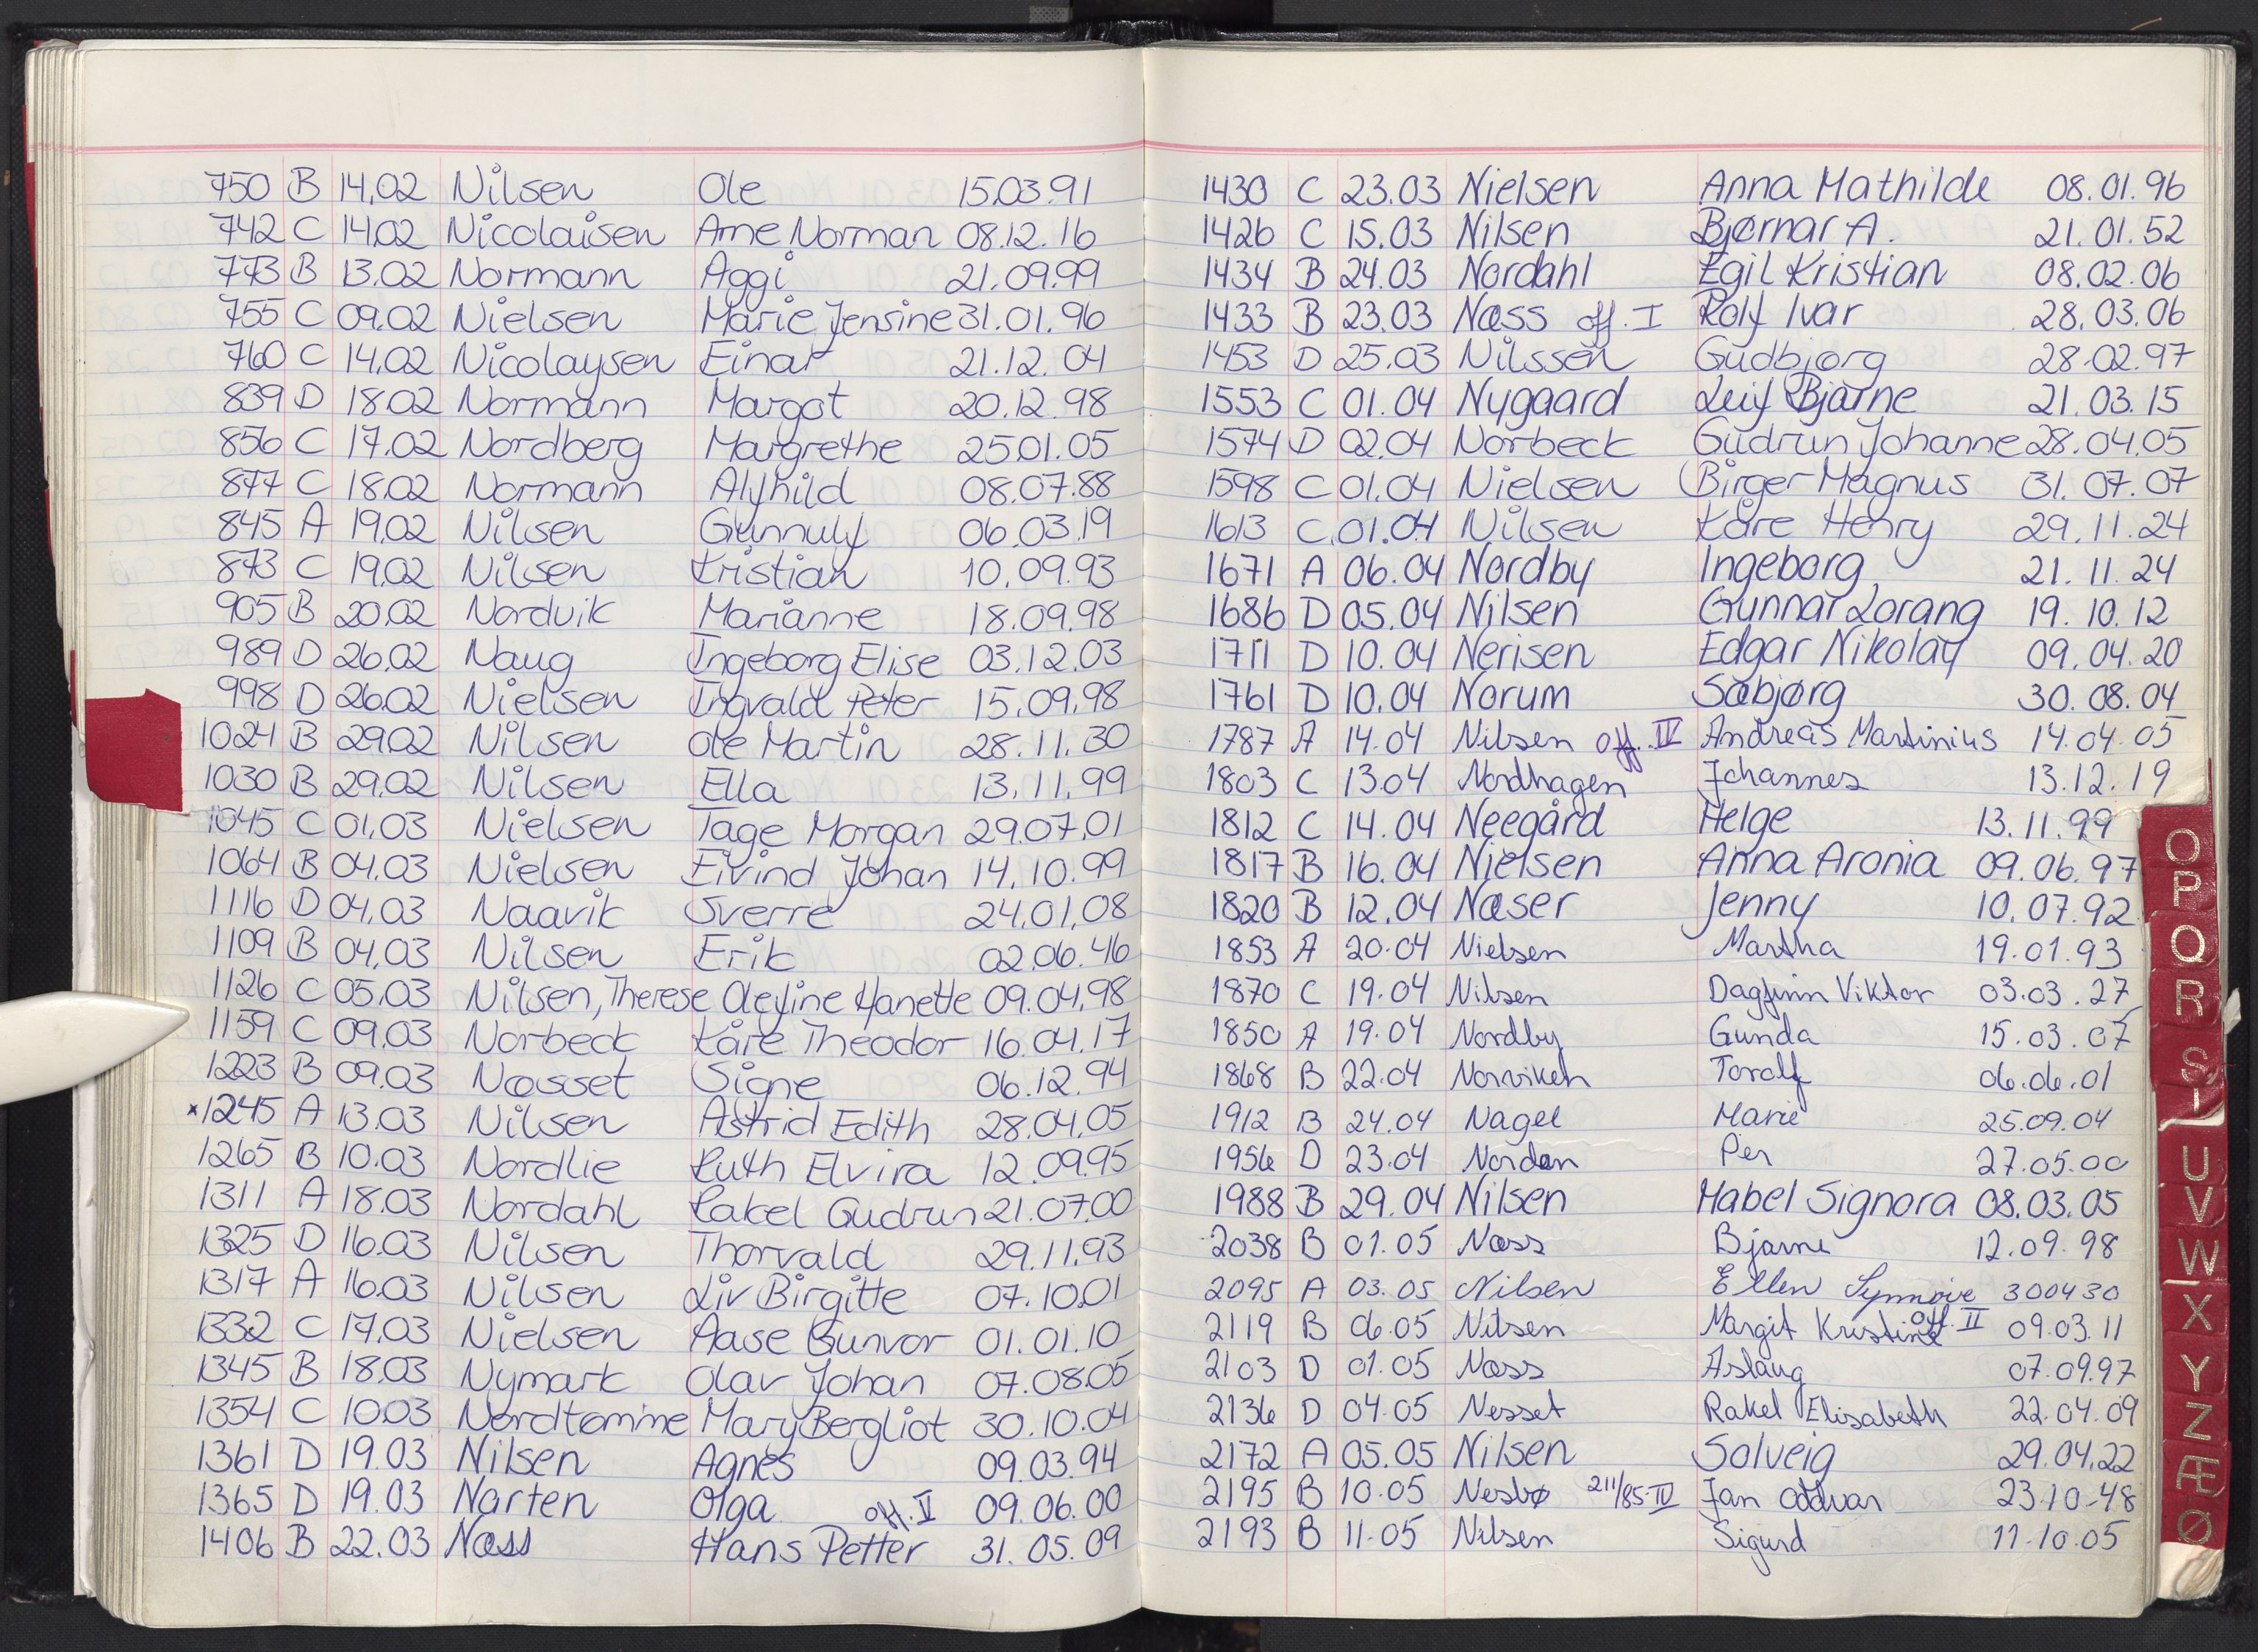 750 B 14.02 Nilsen Ole 15.03.91
742 C 14.02 Nicolaisen Arne Norman 08.12.16
773 B 13.02 Normann Aggi 21.09.99
755 C 09.02 Nielsen Marie Jensine 31.01.96
760 C 14.02 Nicolaysen Einar 21.12.04
839 D 18.02 Normann Margot 20.12.98
856 C 17.02 Nordberg Margrethe 25.01.05
877 C 18.02 Normann Alfhild 08.07.88
845 A 19.02 Nilsen Gunnulf 06.03.19
873 C 19.02 Nilsen Kristian 10.09.93
905 B 20.02 Nordvik Marianne 18.09.98
989 D 26.02 Naug Ingeborg Elise 03.12.03
998 D 26.02 Nielsen Ingvald Peter 15.09.98
1024 B 29.02 Nilsen Ole Martin 28.11.30
1030 B 29.02 Nilsen Ella 13.11.99
1045 C 01.03 Nielsen Tage Morgan 29.07.01
1064 B 04.03 Nielsen Eivind Johan 14.10.99
1116 D 04.03 Naavik Sverre 24.01.08
1109 B 04.03 Nilsen Erik 02.06.46
1126 C 05.03 Nilsen, Therese Olefine Hanette 09.04.98
1159 C 09.03 Norbeck Kåre Theodor 16.04.17
1223 B 09.03 Næsset Signe 06.12.94
x1245 A 13.03 Nilsen Astrid Edith 28.04.05
1265 B 10.03 Nordlie Ruth Elvira 12.09.95
1311 A 18.03 Nordahl Rakel Gudrun 21.07.00
1325 D 16.03 Nilsen Thorvald 29.11.93
1317 A 16.03 Nilsen Liv Birgitte 07.10.01
1332 C 17.03 Nielsen Aase Gunvor 01.01.10
1345 B 18.03 Nymark Olav Johan 07.08.05
1354 C 10.03 Nordtømme Mary Bergliot 30.10.04
1361 D 19.03 Nilsen Agnes 09.03.94
1365 D 19.03 Narten Olga off. V 09.06.00
1406 B 22.03 Næss Hans Petter 31.05.09
1430 C 23.03 Nielsen Anna Mathilde 08.01.96
1426 C 15.03 Nilsen Bjørnar A. 21.01.52
1434 B 24.03 Nordahl Egil Kristian 08.02.06
1433 B 23.03 Næss off. I Rolf Ivar 28.03.06
1453 D 25.03 Nilssen Gudbjørg 28.02.97
1553 C 01.04 Nygaard Leif Bjarne 21.03.15
1574 D 02.04 Norbeck Gudrun Johanne 28.04.05
1598 C 01.04 Nielsen Birger Magnus 31.07.07
1613 C 01.04 Nilsen Kåre Henry 29.11.24
1671 A 06.04 Nordby Ingeborg 21.11.24
1686 D 05.04 Nilsen Gunnar Lorang 19.10.12
1711 D 10.04 Nerisen Edgar Nikolay 09.04.20
1761 D 10.04 Norum Sæbjørg 30.08.04
1787 A 14.04 Nilsen off. IV Andreas Martinius 14.04.05
1803 C 13.04 Nordhagen Johannes 13.12.19
1812 C 14.04 Neegård Helge 13.11.99
1817 B 16.04 Nielsen Anna Aronia 09.06.97
1820 B 12.04 Næser Jenny 10.07.92
1853 A 20.04 Nielsen Martha 19.01.93
1870 C 19.04 Nilsen Dagfinn Viktor 03.03.27
1850 A 19.04 Nordby Gunda 15.03.07
1868 B 22.04 Norviken Toralf 06.06.01
1912 B 24.04 Nagel Marie 25.09.04
1956 D 23.04 Norden Per 27.05.00
1988 B 29.04 Nilsen Mabel Signora 08.03.05
2038 B 01.05 Næss Bjarne 12.09.98
2095 A 03.05 Nilsen Ellen Synnøve 300430
2119 B 06.05 Nilsen Margit Kristine off. II 09.03.11
2103 D 01.05 Næss Aslaug 07.09.97
2136 D 04.05 Nesset Rakel Elisabeth 22.04.09
2172 A 05.05 Nilsen Solveig 29.04.22
2195 B 10.05 Nesbø 211/85-IV Jan Oddvar 23.10.48
2193 B 11.05 Nilsen Sigurd 11.10.05
O
P
Q
R
S
U
V
W
X
Y
Z
Æ
Ø